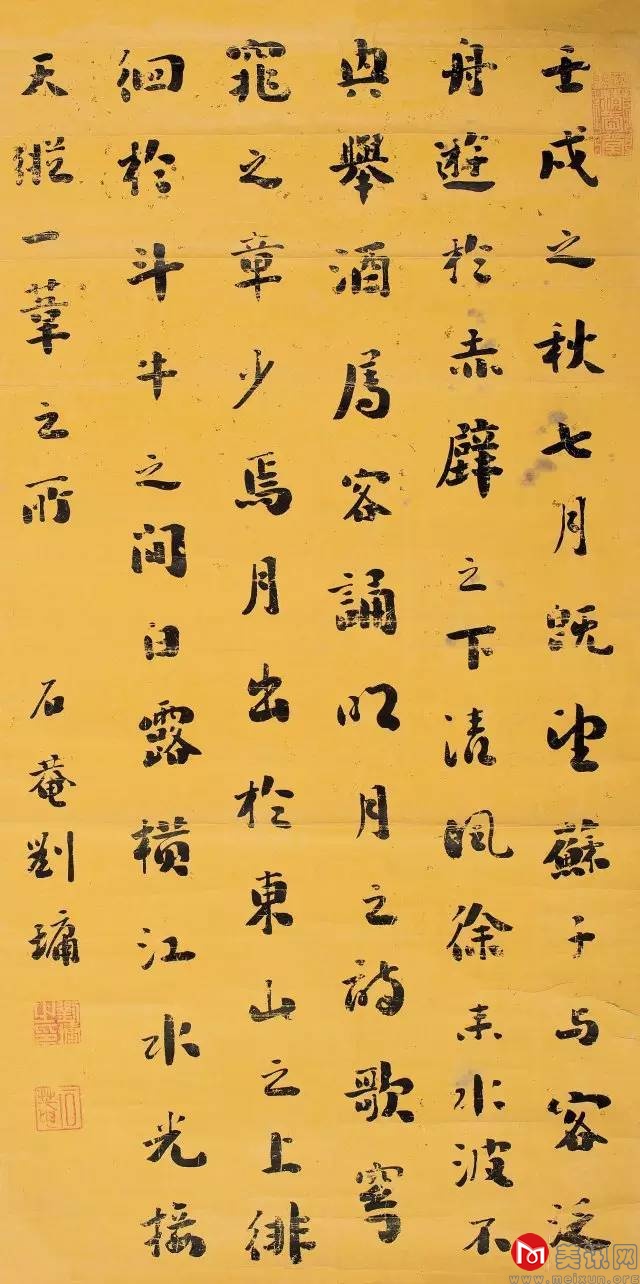 壬戌之秋七月既望蘇子与客泛
舟遊於赤壁之下清風徐来水波不
興舉酒属客誦明月之詩歌窈
窕之章少焉月出於東山之上徘
徊於斗牛之间白露横江水光接
天縱一葦之所
石菴劉墉
美讯网
www.meixun.org